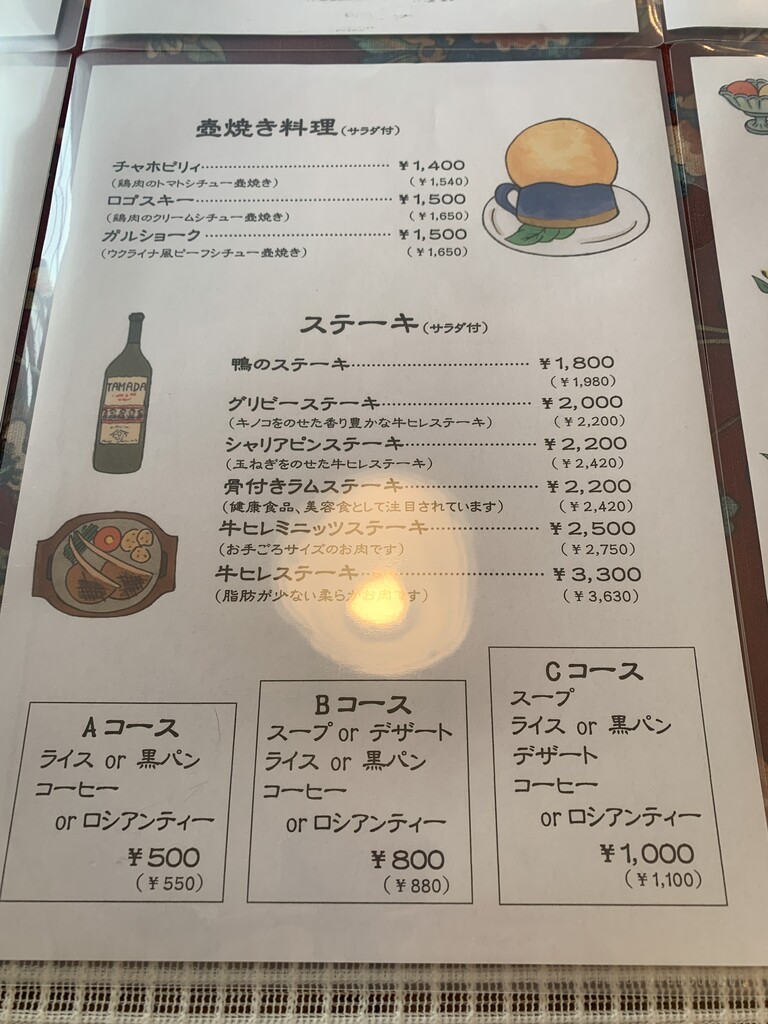 壺焼き料理(サラダ付)
チャホピリィ…………………………… ¥1,400
(鶏肉のトマトシチュー壺焼き) (¥1,540)
ロゴスキー…………………………… ¥1,500
(鶏肉のクリームシチュー壺焼き) (¥1,650)
ガルショーク…………………………… ¥1,500
(ウクライナ風ビーフシチュー壺焼き) (¥1,650)
ステーキ(サラダ付)
鴨のステーキ…………………………… ¥1,800
(¥1,980)
グリビーステーキ……………………… ¥2,000
(キノコをのせた香り豊かな牛ヒレステーキ) (¥2,200)
シャリアピンステーキ………………… ¥2,200
(玉ねぎをのせた牛ヒレステーキ) (¥2,420)
骨付きラムステーキ…………………… ¥2,200
(健康食品、美容食として注目されています) (¥2,420)
牛ヒレミニッツステーキ……………… ¥2,500
(お手ごろサイズのお肉です) (¥2,750)
牛ヒレステーキ………………………… ¥3,300
(脂肪が少ない柔らかお肉です) (¥3,630)
TAMADA
Aコース
ライス or 黒パン
コーヒー
or ロシアンティー
¥500
(¥550)
Bコース
スープ or デザート
ライス or 黒パン
コーヒー
or ロシアンティー
¥800
(¥880)
Cコース
スープ
ライス or 黒パン
デザート
コーヒー
or ロシアンティー
¥1,000
(¥1,100)